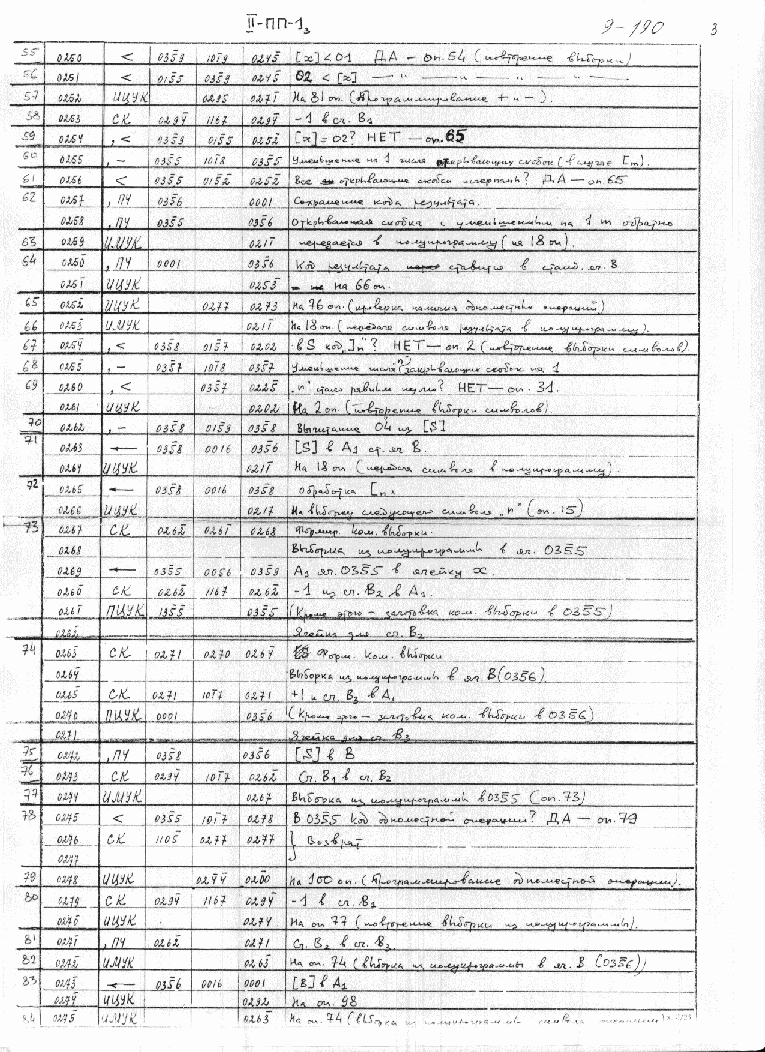 II-ПП-1₃ 9-190 3
55 0250 < 0359̄ 1019̄ 0245̄ [x]<01 ДА — оп. 54 (повторение выборки)
56 0251 < 0155̄ 0359̄ 0245̄ 02 < [x] — " — " — " —
57 0252 ИЦУК 0295 0271̄ На 81 оп. (Программирование + и -).
58 0253 СК 0294̄ 1167 0294̄ -1 в сч. В₁
59 0254 , < 0359̄ 0155̄ 0252̄ [x]=02? НЕТ — оп. 65
60 0255 , - 0355̄ 1018̄ 0355̄ Уменьшение на 1 числа открывающих скобок (в случае [m).
61 0256 < 0355̄ 0152̄ 0252̄ Все открывающие скобки исчерпаны? ДА — оп. 65
62 0257 , ПЧ 0356̄ 0001 Сохранение кода результата.
0258 , ПЧ 0355̄ 0356̄ Открывающая скобка с уменьшенным на 1 m обратно
63 0259 ИМУК 0211̄ передается в полупрограмму (на 18 оп).
64 0250̄ , ПЧ 0001 0356̄ Код результата ставится в станд. яч. В
0251̄ ИЦУК 0253̄ на 66 оп.
65 0252̄ ИЦУК 0277 0273 На 76 оп. (проверка наличия одноместной операции)
66 0253̄ ИМУК 0211̄ На 18 оп. (передача символа результата в полупрограмму).
67 0254̄ , < 0358̄ 0157̄ 0202 в S код "]n"? НЕТ — оп. 2 (повторение выборки символов)
68 0255̄ , - 0357̄ 1018̄ 0357̄ Уменьшение числа закрывающих скобок на 1
69 0260 , < 0357̄ 0225̄ "n" стало равным нулю? НЕТ — оп. 31.
0261 ИЦУК 0202 На 2 оп. (повторение выборки символов)
70 0262 , - 0358̄ 0159̄ 0358̄ Вычитание 04 из [S]
71 0263 ← 0358̄ 0016 0356̄ [S] в А₁ ст. яч. В.
0264 ИЦУК 0211̄ На 18 оп. (передача символа в полупрограмму).
72 0265 ← 0358̄ 0016 0358̄ Обработка [n.
0266 ИЦУК 0217 На выборку следующего символа "n" (оп. 15)
73 0267 СК 0262̄ 0261̄ 0268 Формир. ком. выборки.
0268 Выборка из полупрограммы в яч. 0355̄
0269 ← 0355̄ 0056 0359̄ А₁ яч. 0355̄ в ячейку x.
0260̄ СК 0262̄ 1167 0262̄ -1 из сч. В₂ в А₁.
0261̄ ПЦУК 1355̄ 0355̄ (Кроме этого — заготовка ком. выборки в 0355̄)
0262̄ Ячейка для сч. В₂
74 0263̄ СК 0271 0270 0264̄ Форм. ком. выборки
0264̄ Выборка из полупрограммы в яч. В (0356̄).
0265̄ СК 0271 1017̄ 0271 +1 к сч. В₃ в А₁
0270 ПЦУК 0001 0356̄ (Кроме этого — заготовка ком. выборки в 0356̄)
0271 Ячейка для сч. В₃
75 0272 , ПЧ 0358̄ 0356̄ [S] в В
76 0273 СК 0294̄ 1017̄ 0262̄ Сч. В₁ в сч. В₂
77 0274 ИМУК 0267 Выборка из полупрограммы в 0355̄ (оп. 73)
78 0275 < 0355̄ 1017̄ 0278 В 0355̄ код одноместной операции? ДА — оп. 79
0276 СК 1105̄ 0277 0277 } Возврат
0277
79 0278 ИЦУК 0244̄ 0200 На 100 оп. (Программирование одноместной операции).
80 0279 СК 0294̄ 1167 0294̄ -1 в сч. В₁
0270̄ ИЦУК 0274 На оп 77 (повторение выборки из полупрограммы).
81 0271̄ , ПЧ 0262̄ 0271 Сч. В₂ в сч. В₃.
82 0272̄ ИМУК 0263̄ На оп. 74 (выборка из полупрограммы в яч. В (0356̄))
83 0273̄ ← 0356̄ 0016 0001 [В] в А₁
0274̄ ИЦУК 0292 На оп. 98
84 0275̄ ИМУК 0263̄ На оп. 74 (выборка из полупрограммы символа